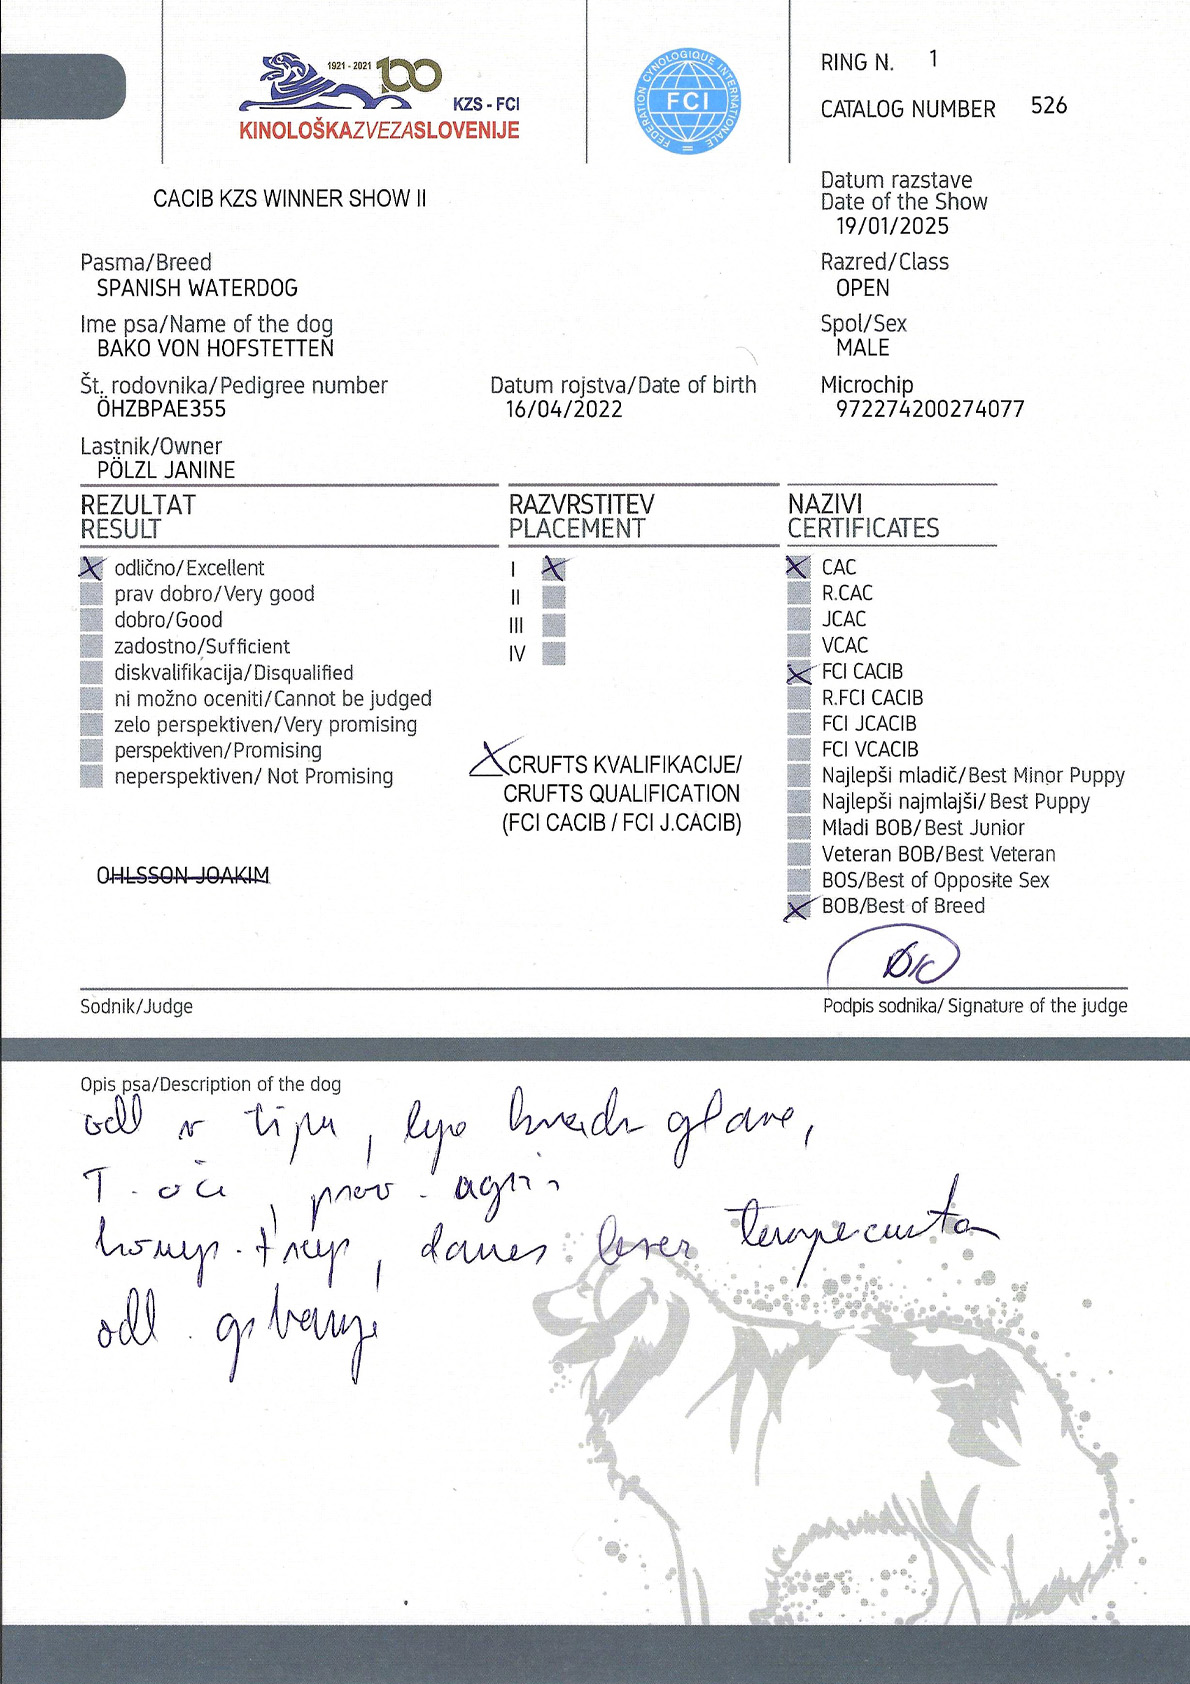 1921 - 2021 100
KZS - FCI
KINOLOŠKAZVEZASLOVENIJE
FEDERATION CYNOLOGIQUE INTERNATIONALE
FCI
RING N. 1
CATALOG NUMBER 526
CACIB KZS WINNER SHOW II
Datum razstave
Date of the Show
19/01/2025
Pasma/Breed
SPANISH WATERDOG
Razred/Class
OPEN
Ime psa/Name of the dog
BAKO VON HOFSTETTEN
Spol/Sex
MALE
Št. rodovnika/Pedigree number
ÖHZBPAE355
Datum rojstva/Date of birth
16/04/2022
Microchip
972274200274077
Lastnik/Owner
PÖLZL JANINE
REZULTAT
RESULT
odlično/Excellent
prav dobro/Very good
dobro/Good
zadostno/Sufficient
diskvalifikacija/Disqualified
ni možno oceniti/Cannot be judged
zelo perspektiven/Very promising
perspektiven/Promising
neperspektiven/ Not Promising
RAZVRSTITEV
PLACEMENT
I
II
III
IV
CRUFTS KVALIFIKACIJE/
CRUFTS QUALIFICATION
(FCI CACIB / FCI J.CACIB)
NAZIVI
CERTIFICATES
CAC
R.CAC
JCAC
VCAC
FCI CACIB
R.FCI CACIB
FCI JCACIB
FCI VCACIB
Najlepši mladič/Best Minor Puppy
Najlepši najmlajši/Best Puppy
Mladi BOB/Best Junior
Veteran BOB/Best Veteran
BOS/Best of Opposite Sex
BOB/Best of Breed
OHLSSON JOAKIM
Sodnik/Judge
Podpis sodnika/ Signature of the judge
Opis psa/Description of the dog
odl v tipu, lepo glave,
T. oči, prav.
danes
odl. gibanje